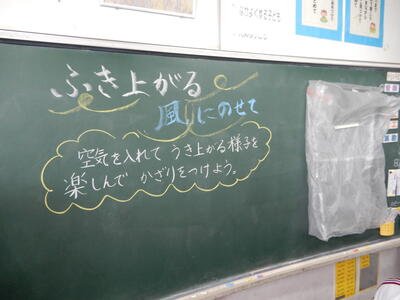 ふき上がる
風にのせて
空気を入れて うき上がる様子を
楽しんで かざりをつけよう。